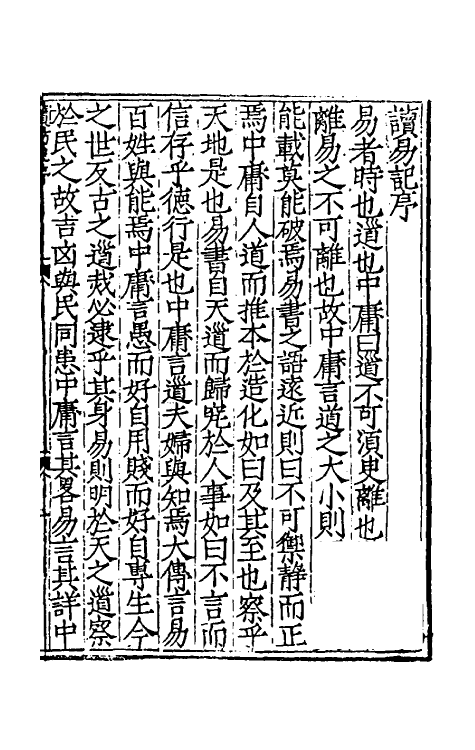 讀易記序
易者時也道也中庸曰道不可須臾離也
離易之不可離也故中庸言道之大小則
能載莫能破焉易書之語遠近則曰不可禦静而正
焉中庸自人道而推本於造化如曰及其至也察乎
天地是也易書自天道而歸宛於人事如曰不言而
信存乎德行是也中庸言道夫婦與知焉大傳言易
百姓與能焉中庸言愚而好自用賤而好自專生今
之世反古之道烖必逮乎其身易則明於天之道察
於民之故吉凶與民同患中庸言其畧易言其詳中